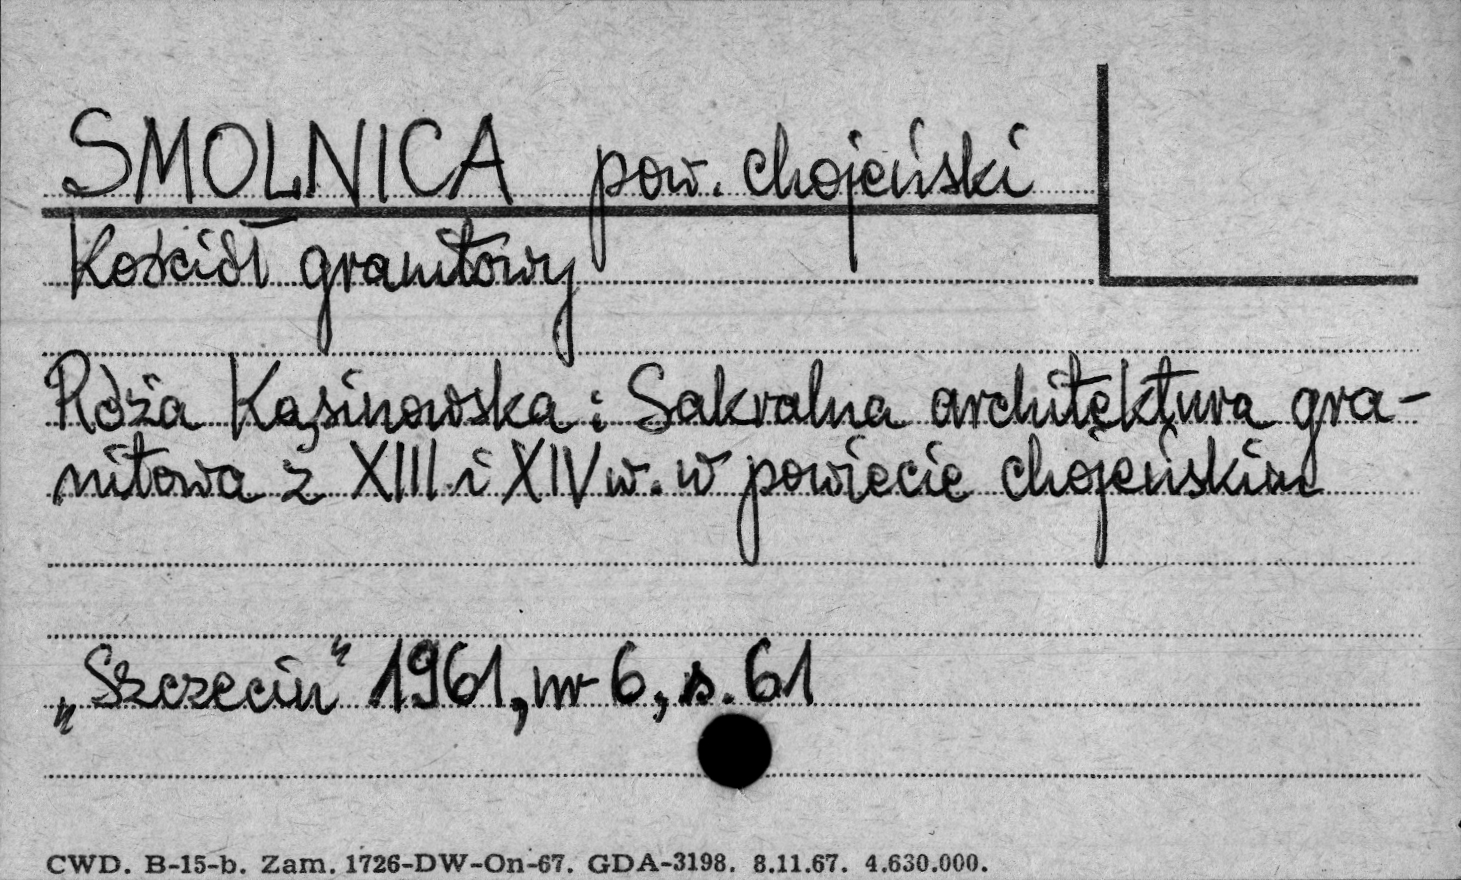 SMOLNICA pow. chojeński
Kościół granitowy
Róża Kąsinowska: Sakralna architektura gra-
nitowa z XIII i XIV w. w powiecie chojeńskim
„Szczecin" 1961, nr 6, s. 61
CWD. B-15-b. Zam. 1726-DW-On-67. GDA-3198. 8.11.67. 4.630.000.